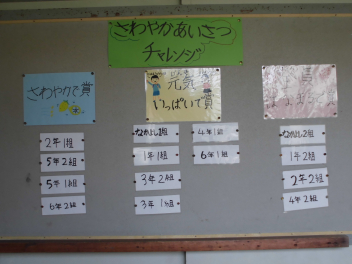 さわやかあいさつ
チャレンジ
さわやかで賞
2年1組
5年2組
5年1組
6年2組
元気
いっぱいで賞
なかよし2組
4年1組
1年1組
6年1組
3年2組
3年1組
なかよし2組
1年2組
2年2組
4年2組